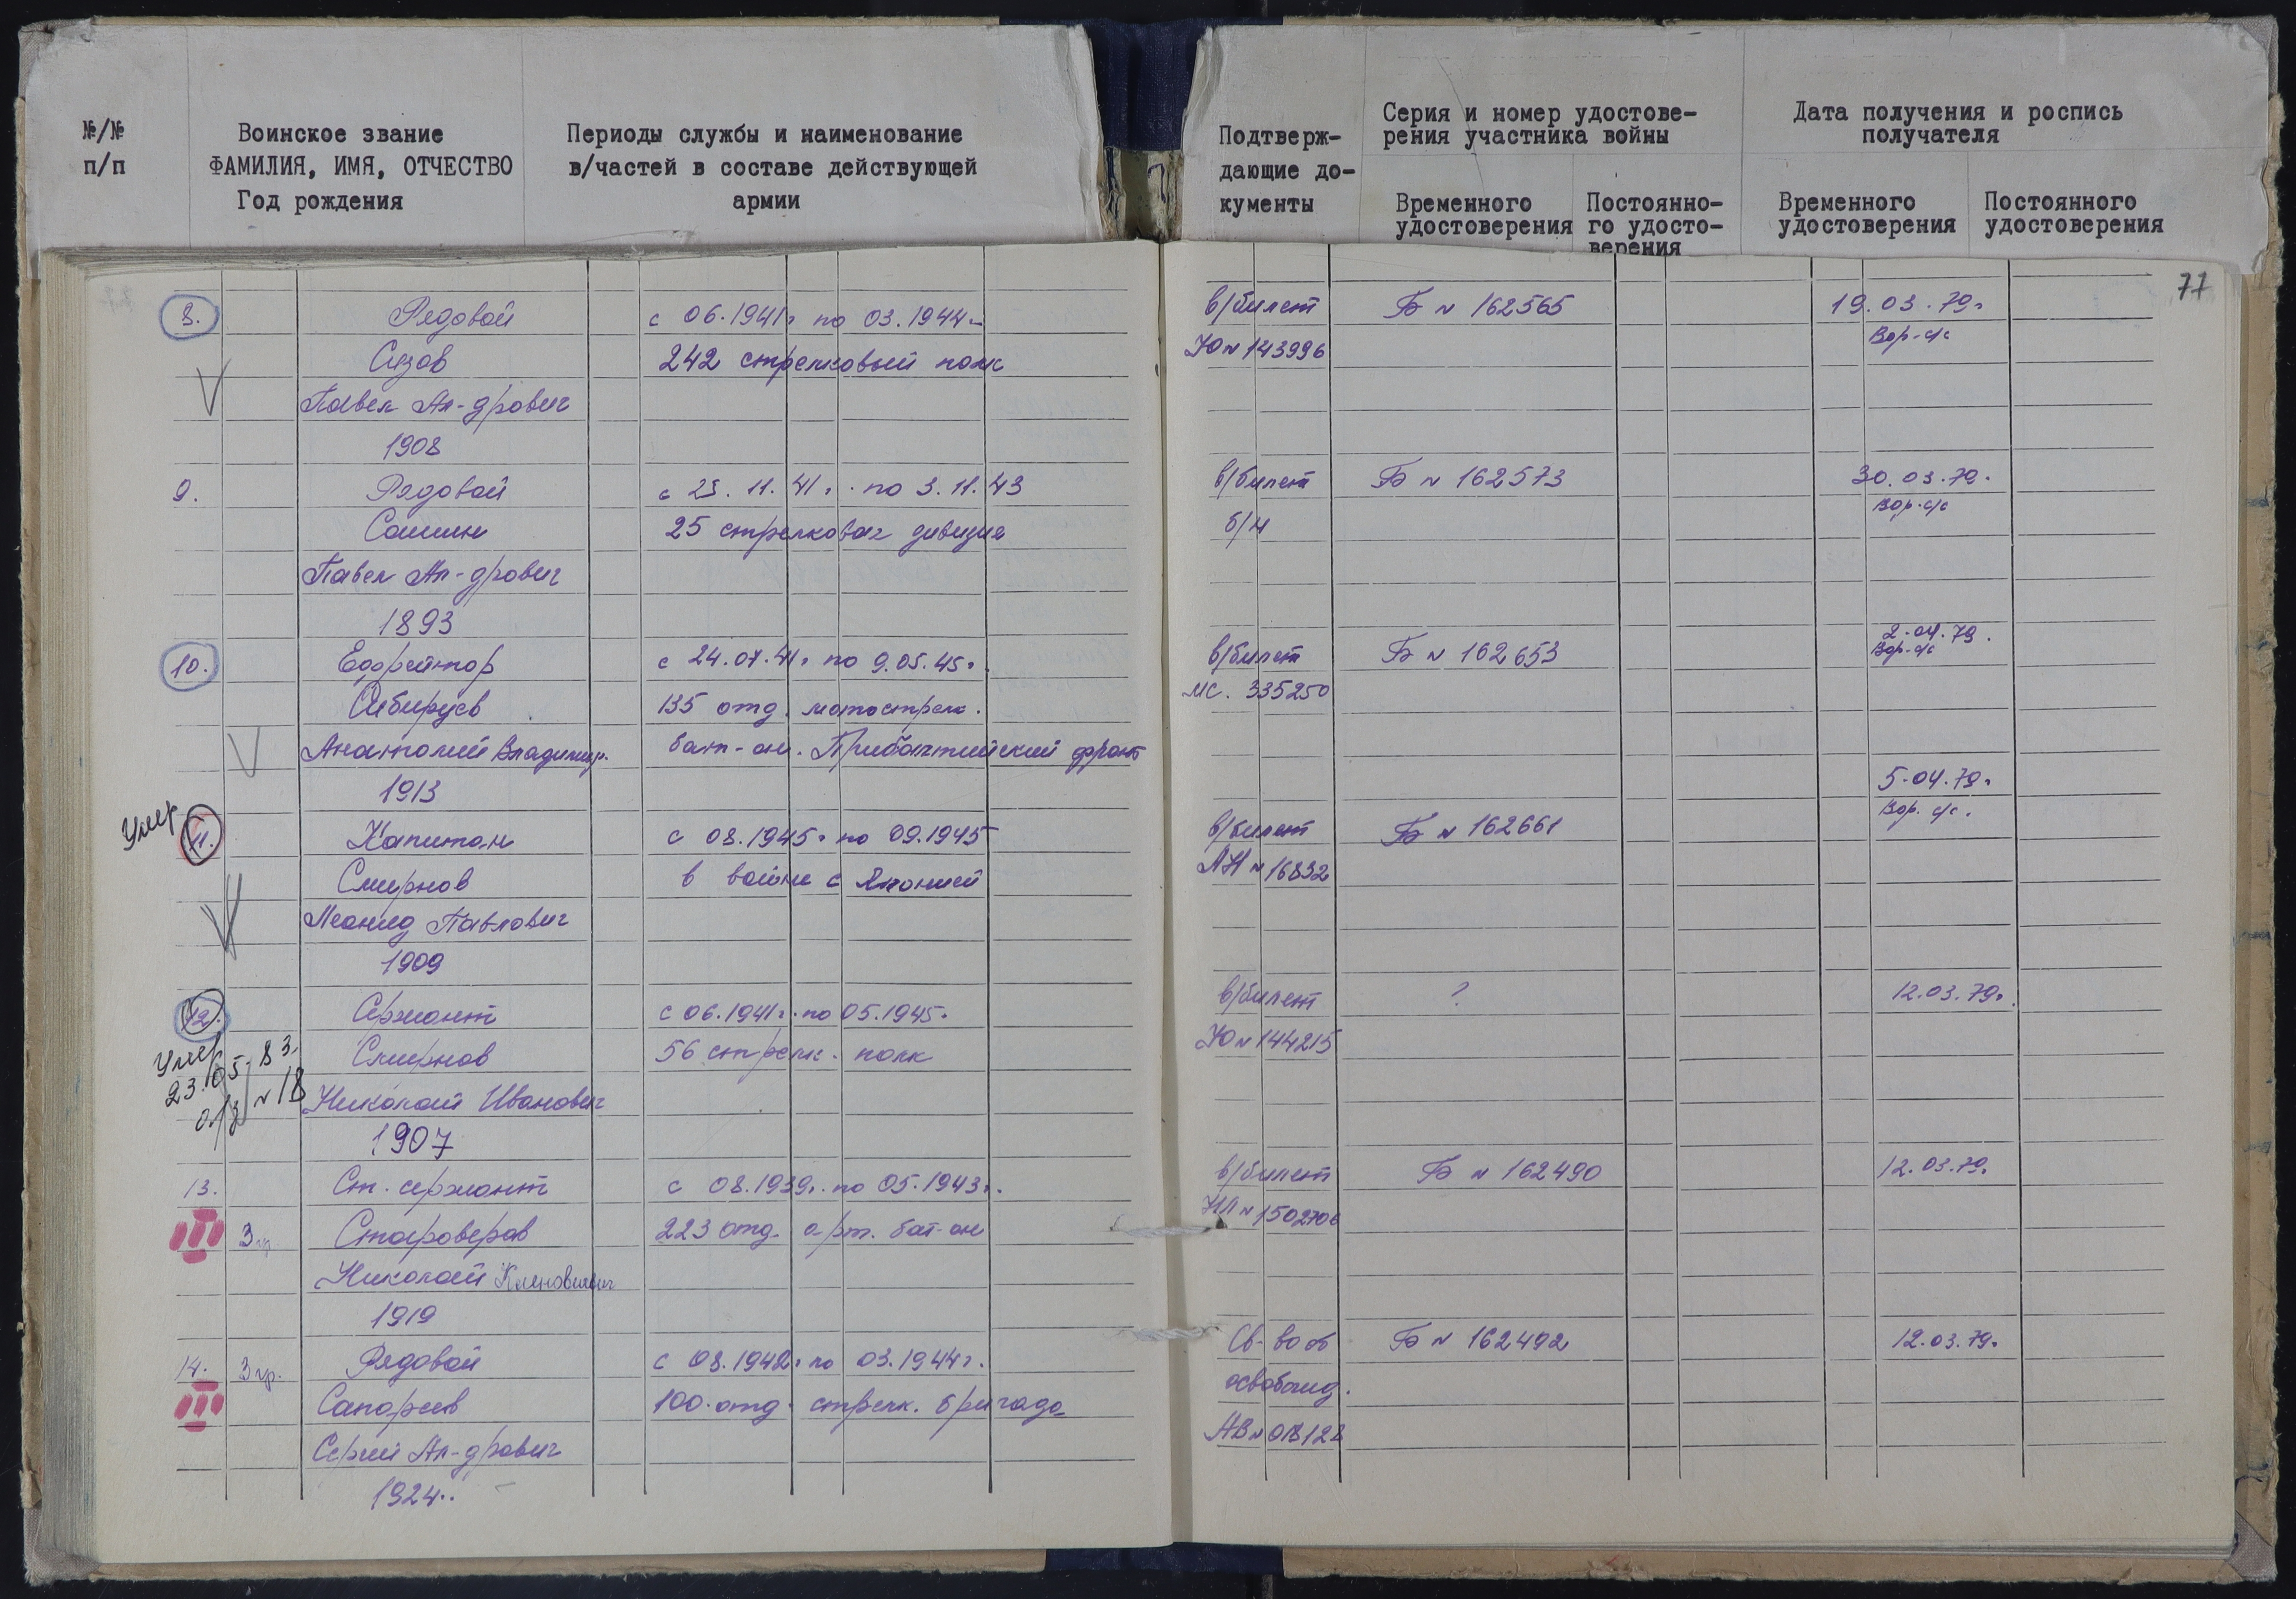 №/№
п/п
Воинское звание
ФАМИЛИЯ, ИМЯ, ОТЧЕСТВО
Год рождения
Периоды службы и наименование
в/частей в составе действующей
армии
Подтверж-
дающие до-
кументы
Серия и номер удостове-
рения участника войны
Временного
удостоверения
Постоянно-
го удосто-
верения
Дата получения и роспись
получателя
Временного
удостоверения
Постоянного
удостоверения
77
8. Рядовой с 06.1941г по 03.1944 в/билет Б № 162565 19.03.79г
Сизов 242 стрелковый полк Ю№143996 Вор-с/с
Павел Ал-дрович
1908
9. Рядовой с 23.11.41г. по 3.11.43 в/билет Б № 162573 30.03.79.
Сошин 25 стрелковая дивизия б/н Вор-с/с
Павел Ал-дрович
1893
10. Ефрейтор с 24.07.41г по 9.05.45г. в/билет Б № 162653 2-04.79.
Сибируев 135 отд. мотострелк. МС. 335250 Вор-с/с
Анатолий Владимир. бат-он. Прибалтийский фронт
1913
Умер 11. Капитан с 08.1945г по 09.1945 в/билет Б № 162661 5-04.79г
Смирнов в войне с Японией АН№16832 Вор. с/с.
Леонид Павлович
1909
12. Сержант с 06.1941г. по 05.1945. в/билет ? 12.03.79г.
Умер Смирнов 56 стрелк. полк Ю№144215
23.05-83. № 18 Николай Иванович
1907
13. Ст. сержант с 08.1939г. по 05.1943г. в/билет Б № 162490 12.03.79г
III 3 гр Староверов 223 отд. арт. бат-он НЛ№1502706
Николай
1919
14. 3 гр. Рядовой с 08.1942г по 03.1944г. Св-во об Б № 162492 12.03.79г
III Сапарев 100.отд. стрелк. бригада освобожд.
Сергей Ал-дрович АВ№018128
1924..